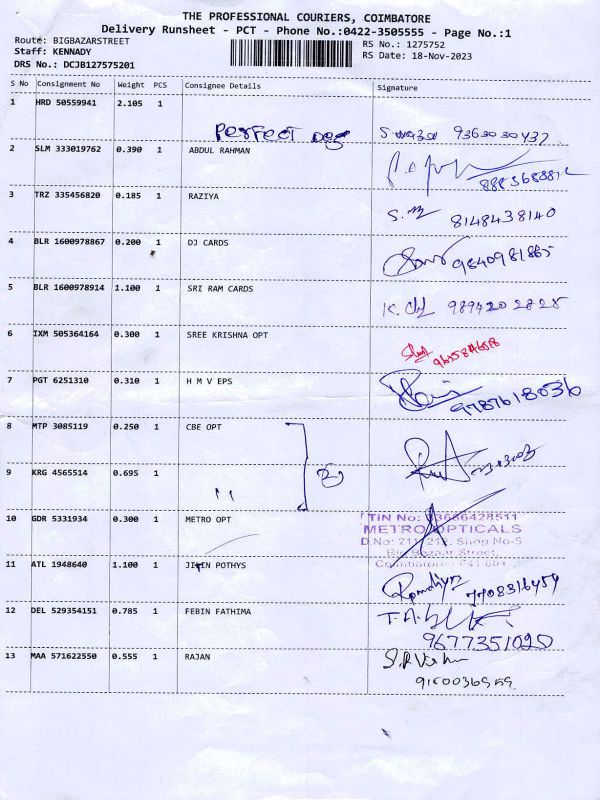 THE PROFESSIONAL COURIERS, COIMBATORE
Delivery Runsheet - PCT - Phone No.:0422-3505555 - Page No.:1
Route: BIGBAZARSTREET
RS No.: 1275752
Staff: KENNADY
RS Date: 18-Nov-2023
DRS No.: DCJB127575201
S No Consignment No Weight PCS Consignee Details Signature
1 HRD 50559941 2.105 1
PERFECT 9363030437
2 SLM 333019762 0.390 1 ABDUL RAHMAN
3 TRZ 335456820 0.185 1 RAZIYA
8148438140
4 BLR 1600978867 0.200 1 DJ CARDS
9840981865
5 BLR 1600978914 1.100 1 SRI RAM CARDS
9894202828
6 IXM 505364164 0.300 1 SREE KRISHNA OPT
7 PGT 6251310 0.310 1 H M V EPS
9787618036
8 MTP 3085119 0.250 1 CBE OPT
9 KRG 4565514 0.695 1
10 GDR 5331934 0.300 1 METRO OPT
TIN No: 33686428511
METRO OPTICALS
D.No: 211/212, Shop No-5
Big Bazaar Street,
11 ATL 1948640 1.100 1 JIBIN POTHYS
7708316459
12 DEL 529354151 0.785 1 FEBIN FATHIMA
9677351020
13 MAA 571622550 0.555 1 RAJAN